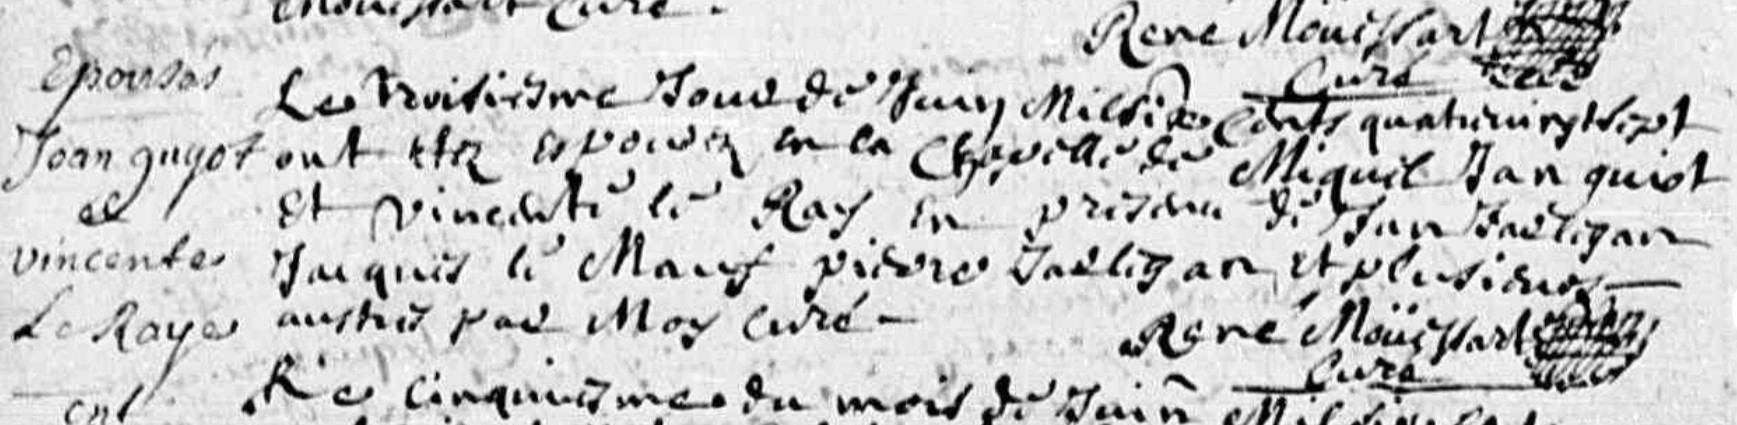 Curé.
René Moüessart
Curé
Epousés
Joan guyot
et
vincente
Le Raye
Le Troisiesme Jour de Juin Mil Six Cents quatrevingt sept
ont Etez Espousez en la Chapelle de Miquel Jan guiot
Et Vincente le Ray en presence de Jan
Jacques le Mauf pierre et plusieurs
austres par Moy Curé
René Moüessart
Curé
Le Cinquiesme du mois de Juin Mil Six Cents